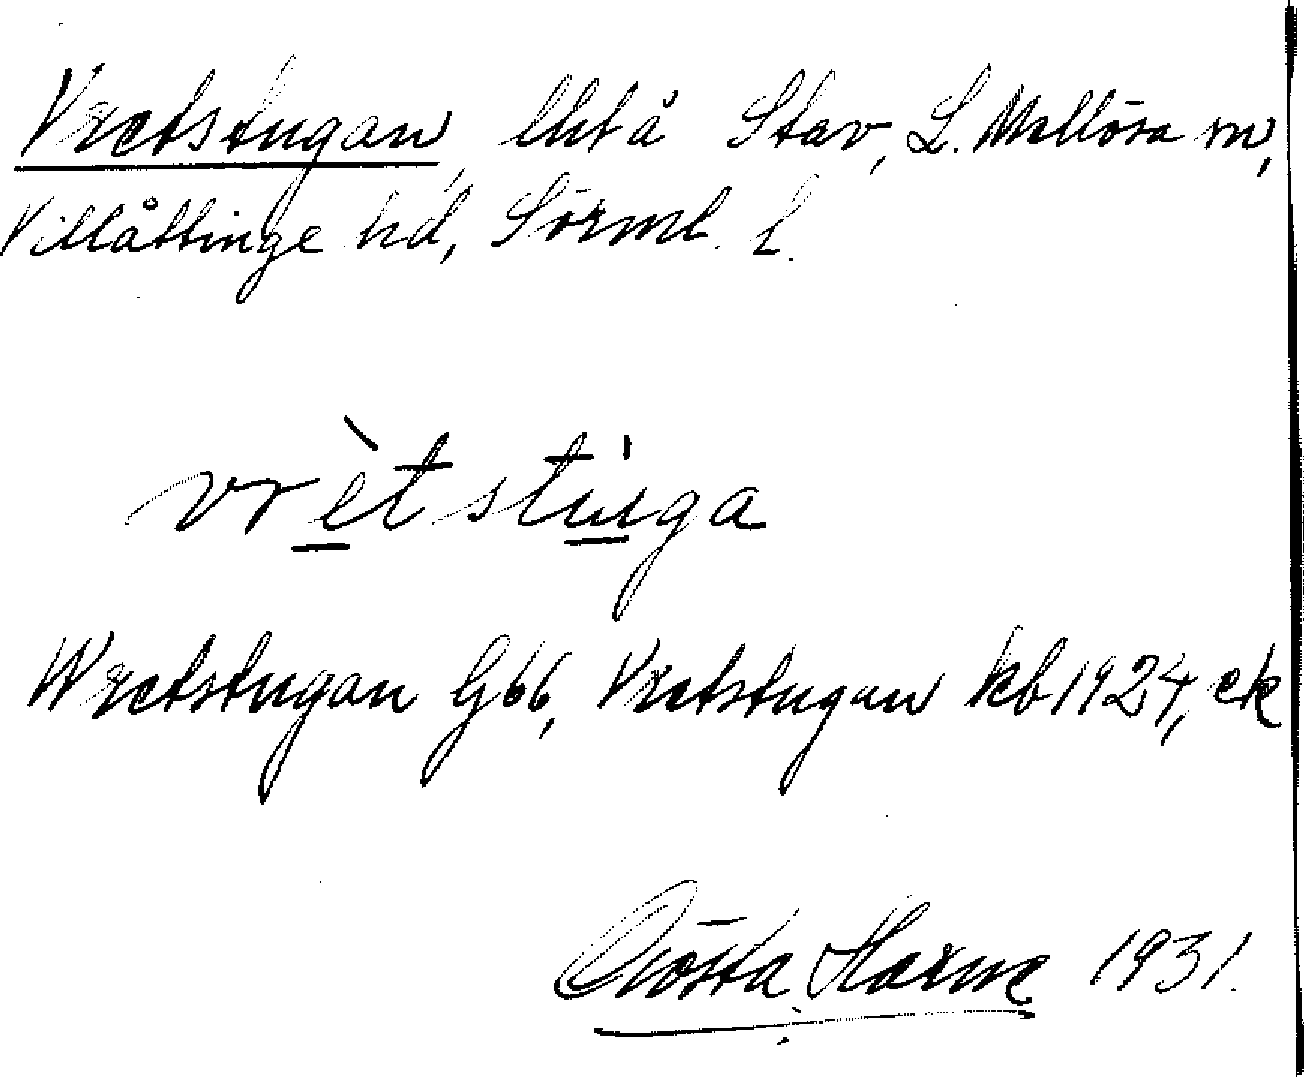 Vretstugan, lht å Stav, L. Mellösa sn,
Villåttinge hd, Sörml. l.
vrètstùga
Wretstugan G66, Vretstugan kb 1924, ek
Gösta Harne 1931.